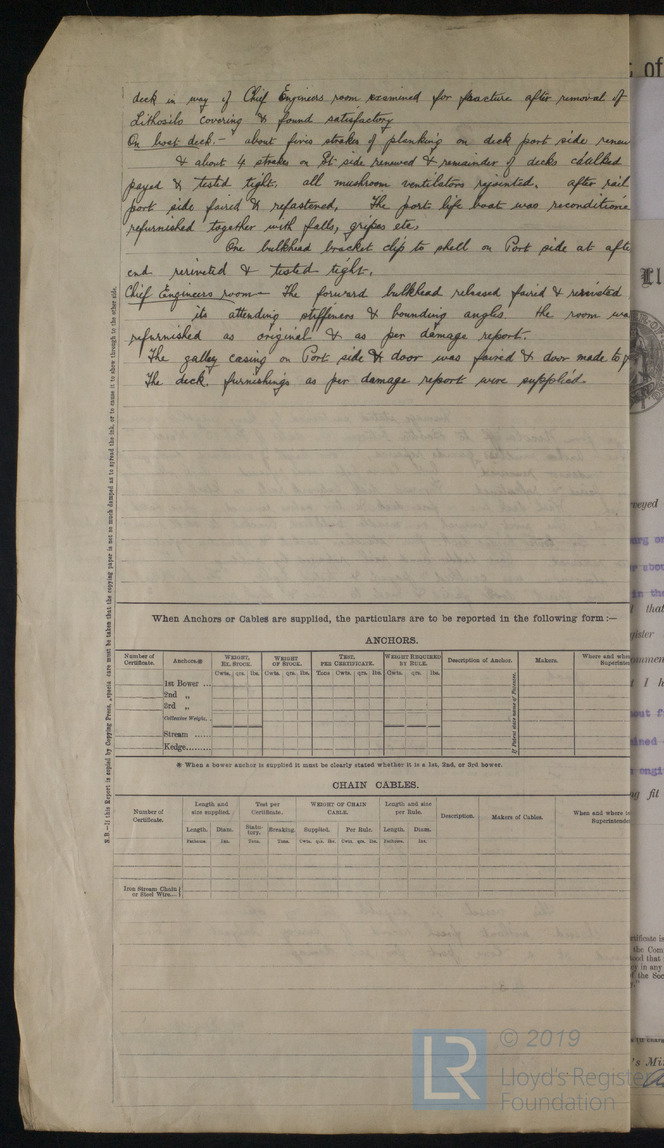 deck in way of Chief Engineers room examined for fracture after removal of
Lithosilo covering & found satisfactory
On boat deck:- about fives strakes of planking on deck port side renew
& about 4 strakes on St side renewed & remainder of decks caulked
payed & tested tight. all mushroom ventilators rejointed. after rail
port side faired & refastened. The port life boat was reconditione
refurnished together with falls, gripes etc.
One bulkhead bracket clip to shell on Port side at afte
end reriveted & tested tight.
Chief Engineers room - The forward bulkhead released faired & reriveted
its attending stiffeners & bounding angles the room wa
refurnished as original & as per damage report.
The galley casing on Port side & door was faired & door made to
The deck furnishings as per damage report were supplied.
N.B.—If this Report is copied by Copying Press, special care must be taken that the copying paper is not so much damped as to spread the ink, or to cause it to show through to the other side.
When Anchors or Cables are supplied, the particulars are to be reported in the following form :—
ANCHORS.
Number of Certificate. Anchors.※ WEIGHT, EX. STOCK. WEIGHT OF STOCK. TEST, PER CERTIFICATE. WEIGHT REQUIRED BY RULE. Description of Anchor. Makers. Where and whe Superinten
Cwts. qrs. lbs. Cwts. qrs. lbs. Tons Cwts. qrs. lbs. Cwts. qrs. lbs.
1st Bower ...
2nd „
3rd „
Collective Weight..
Stream ......
Kedge.........
If Patent state name of Patentee.
※ When a bower anchor is supplied it must be clearly stated whether it is a 1st, 2nd, or 3rd bower.
CHAIN CABLES.
Number of Certificate. Length and size supplied. Test per Certificate. WEIGHT OF CHAIN CABLE. Length and size per Rule. Description. Makers of Cables. When and where Superintende
Length. Diam. Statutory. Breaking. Supplied. Per Rule. Length. Diam.
Fathoms. Ins. Tons. Tons. Cwts. qrs. lbs. Cwts. qrs. lbs. Fathoms. Ins.
Iron Stream Chain or Steel Wire...
© 2019
LR
Lloyd's Register
Foundation